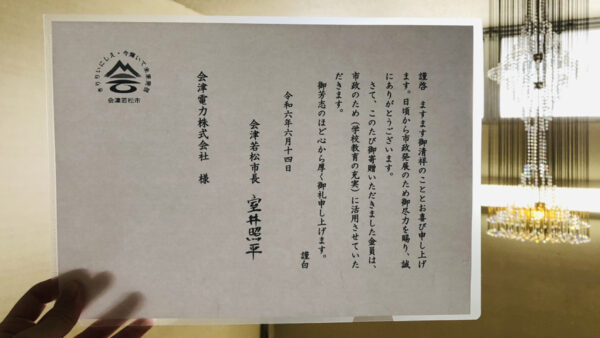 謹啓　ますます御清祥のこととお喜び申し上げ
ます。日頃から市政発展のため御尽力を賜り、誠
にありがとうございます。
さて、このたび御寄贈いただきました金員は、
市政のため（学校教育の充実）に活用させていた
だきます。
御芳志のほど心から厚く御礼申し上げます。
謹白
令和六年六月十四日
会津若松市長　室井照平
会津電力株式会社　様
会津若松市